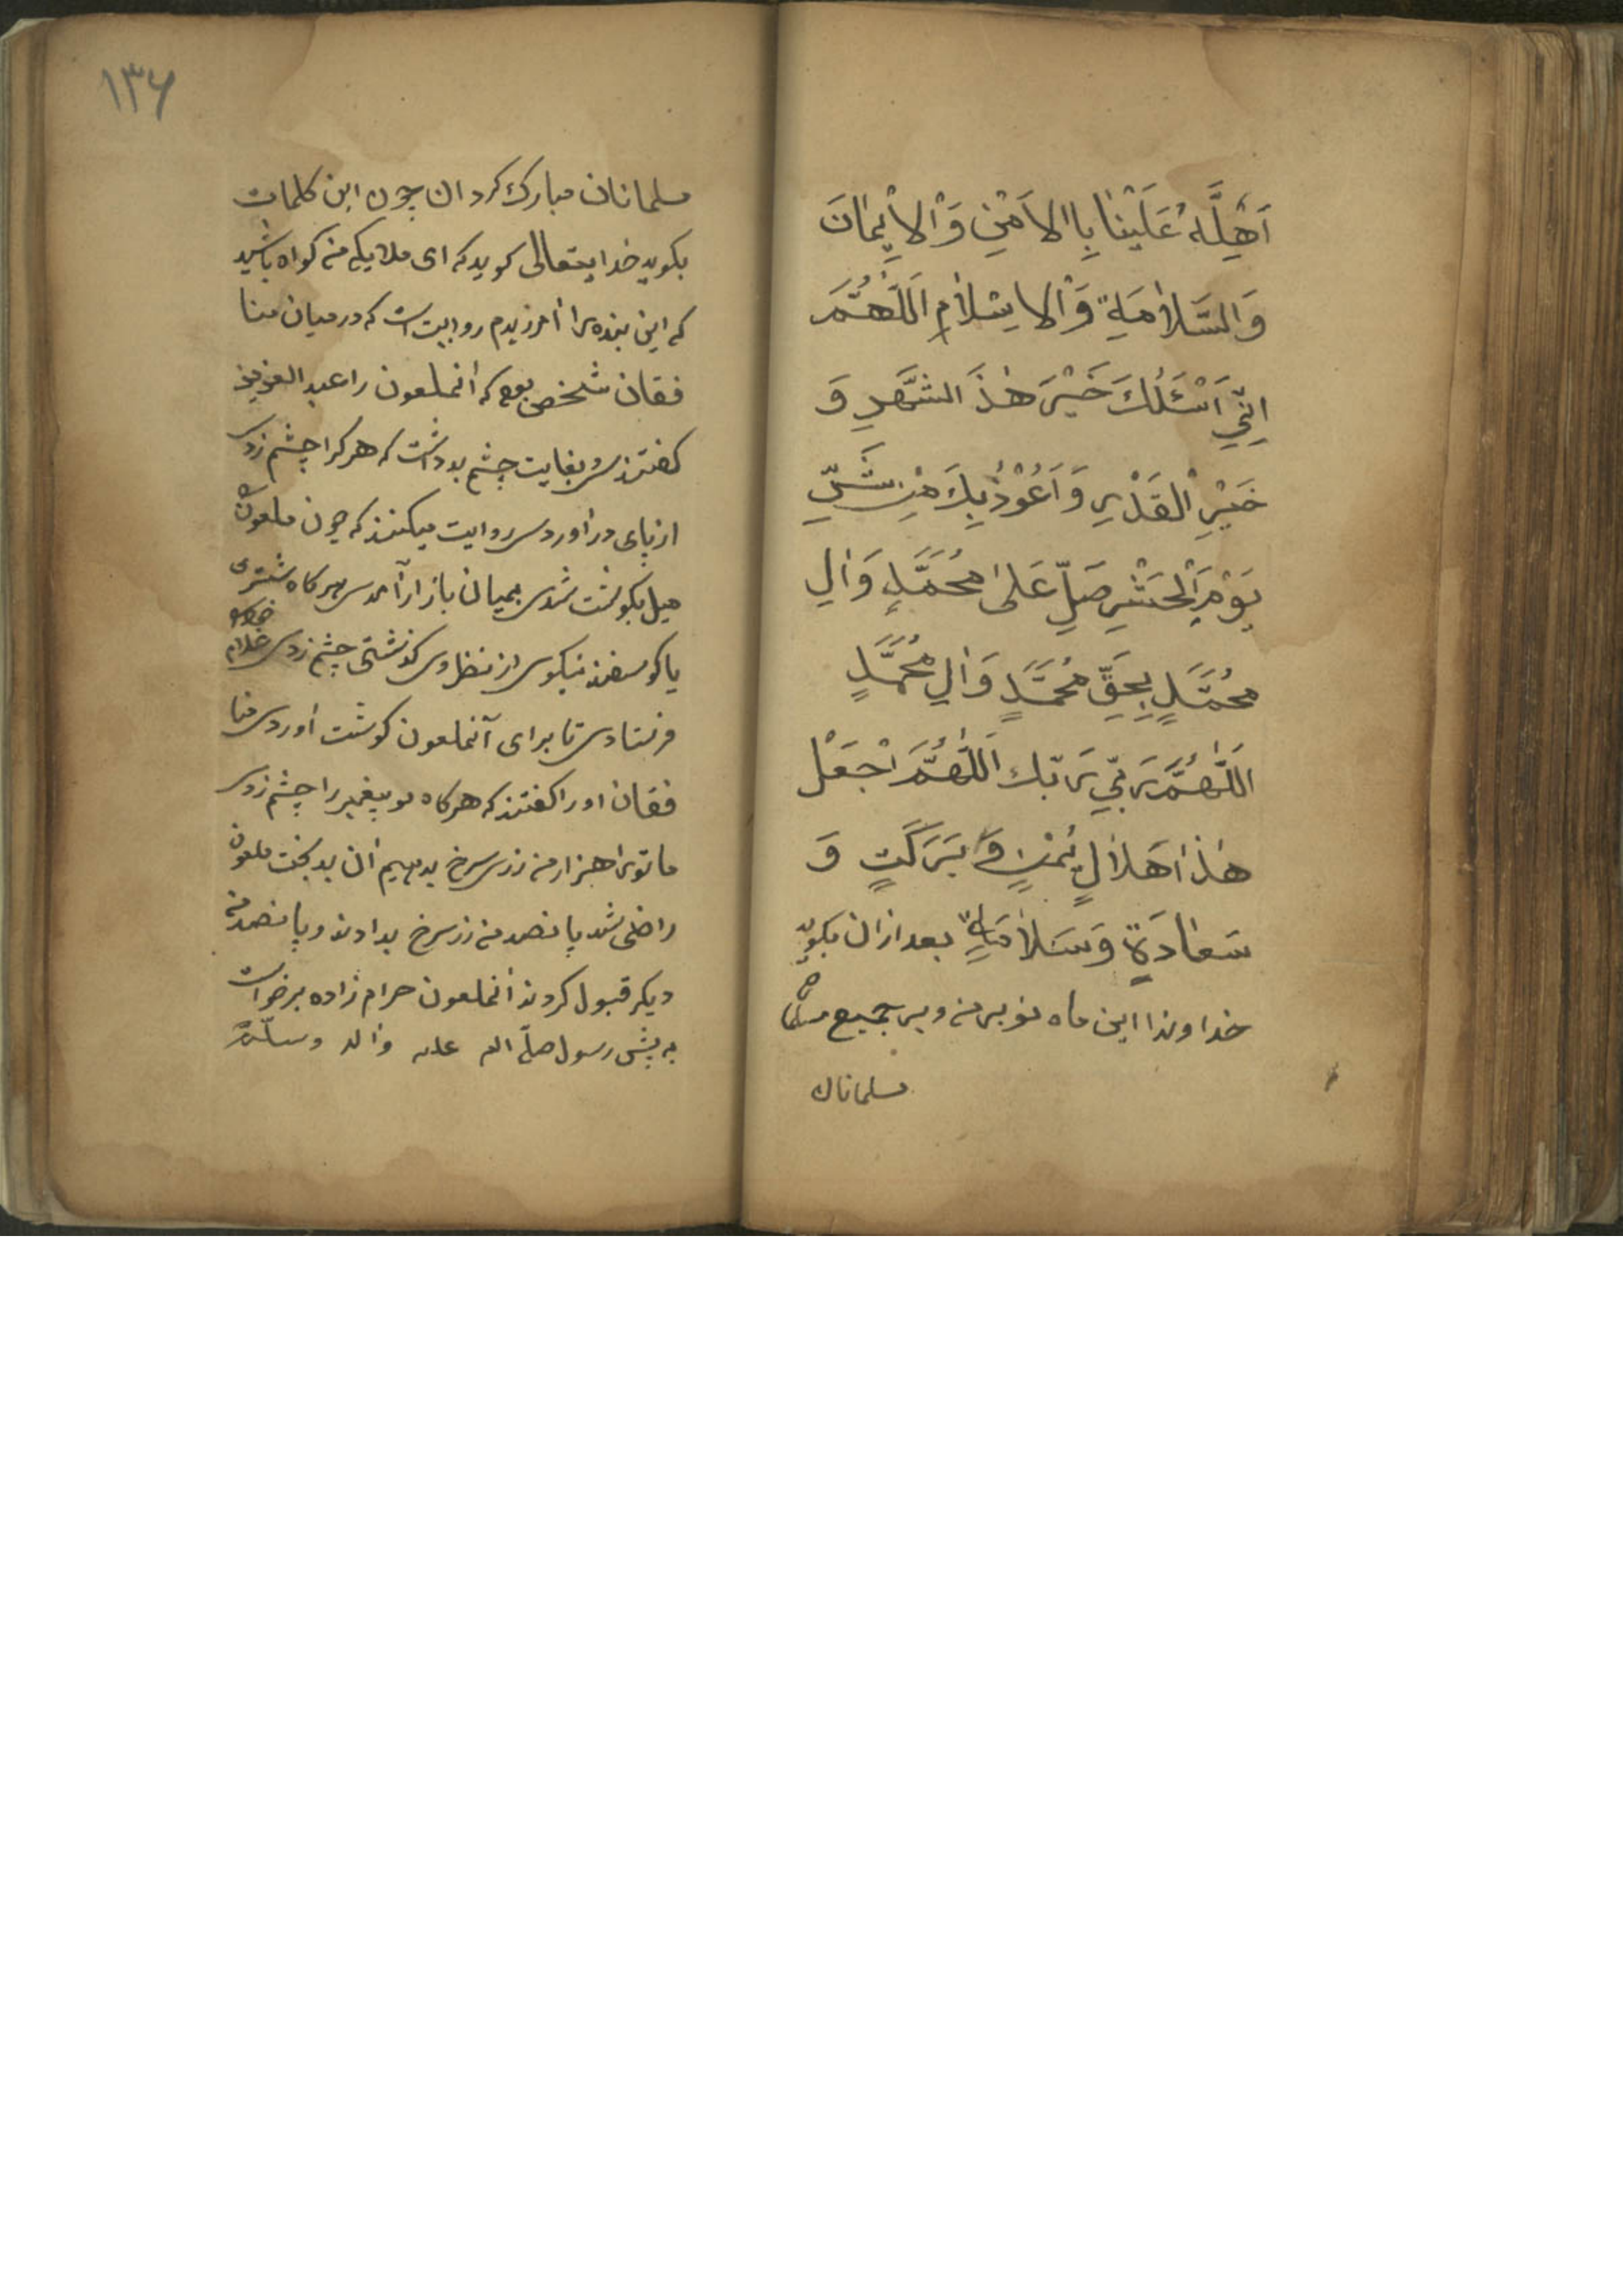 اَهِلَّهُ عَلَیْنٰا بِاالاَمْنِ وَالاْیِمٰانَ
وَالسَّلاٰمَةِ وَالاِسْلاٰمِ اَللّٰهُمَّ
اِنّیِ اَسْئَلُكَ خَیْرَ هٰذَ الشَّهرِ وَ
خَیْرِ الْقَدْرِ وَ اَعُوْذُ بِكَ مِنِ شَرِّ
یَوْمِ الْحَشْرِ صَلِّ عَلیٰ مُحَمَّدٍ وَاٰلِ
مُحَمَّدٍ بِحَقِّ مُحَمَّدٍ وَاٰلِ مُحَمَّدٍ
اَللّٰهُمَّ رَبّیِ رَبّك اَللّٰهُمَّ اجْعَلْ
هٰذٰا هَلاٰلٍ یُمْنٍ وَّ بَرَكَتٍ وَ
سَعٰادَةٍ وَسَلاٰمَةٍ بعد ازان بکوید
خداوندا این ماه نو بر من و بر جمیع
مسلمانان
۱۳۶
مسلمانان مبارك کردان چون این کلمات
بکوید خدایتعالی کوید که ای ملایکه من کواه باشید
که این بنده را امرزیدم روایت است که در میان منا
فقان شخصی بود که انملعون را عبد العزیز
کفتندی و بغایت چشم بد داشت که هر کرا چشم زدی
از پای در اوردی روایت میکنند که چون ان ملعون
میل بکوشت شدی بمیان بازار آمدی هر کاه شتری
یا کوسفند نیکوی از نظر وی کذشتی چشم زدی غلام خود
فرستادی تا برای آنملعون کوشت اوردی منا
فقان او را کفتند که هر کاه تو پیغمبر را چشم زدی
ما تورا هزار من زر سرخ بدهیم ان بد بخت ملعون
راضی شد پانصد من زر سرخ بدادند و پانصد من
دیکر قبول کردند انملعون حرام زاده برخواست
به پیش رسول صلّی الله علیه واله وسلّم